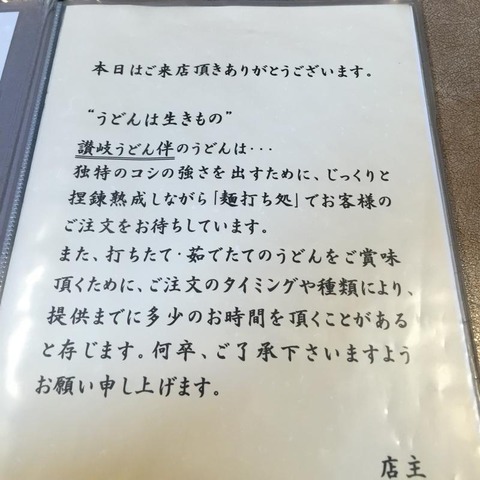 本日はご来店頂きありがとうございます。
“うどんは生きもの”
讃岐うどん伴のうどんは・・・
独特のコシの強さを出すために、じっくりと
捏錬熟成しながら「麺打ち処」でお客様の
ご注文をお待ちしています。
また、打ちたて・茹でたてのうどんをご賞味
頂くために、ご注文のタイミングや種類により、
提供までに多少のお時間を頂くことがある
と存じます。何卒、ご了承下さいますよう
お願い申し上げます。
店主